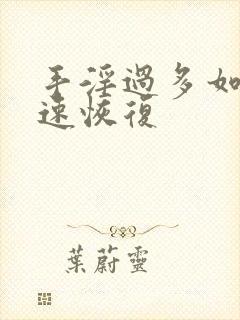 手淫過多如
速恢復
葉蔚靈